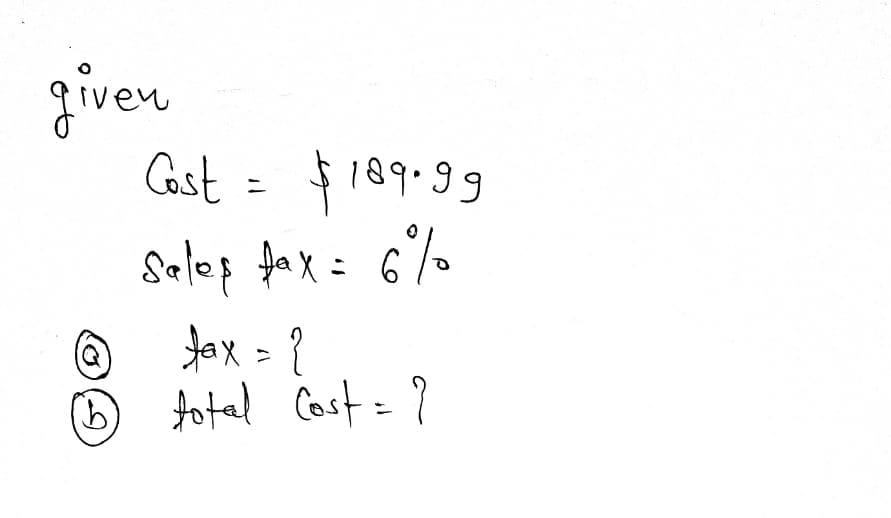 given
Cost = $189.99
Sales tax = 6%
ⓐ tax = ?
ⓑ total Cost = ?